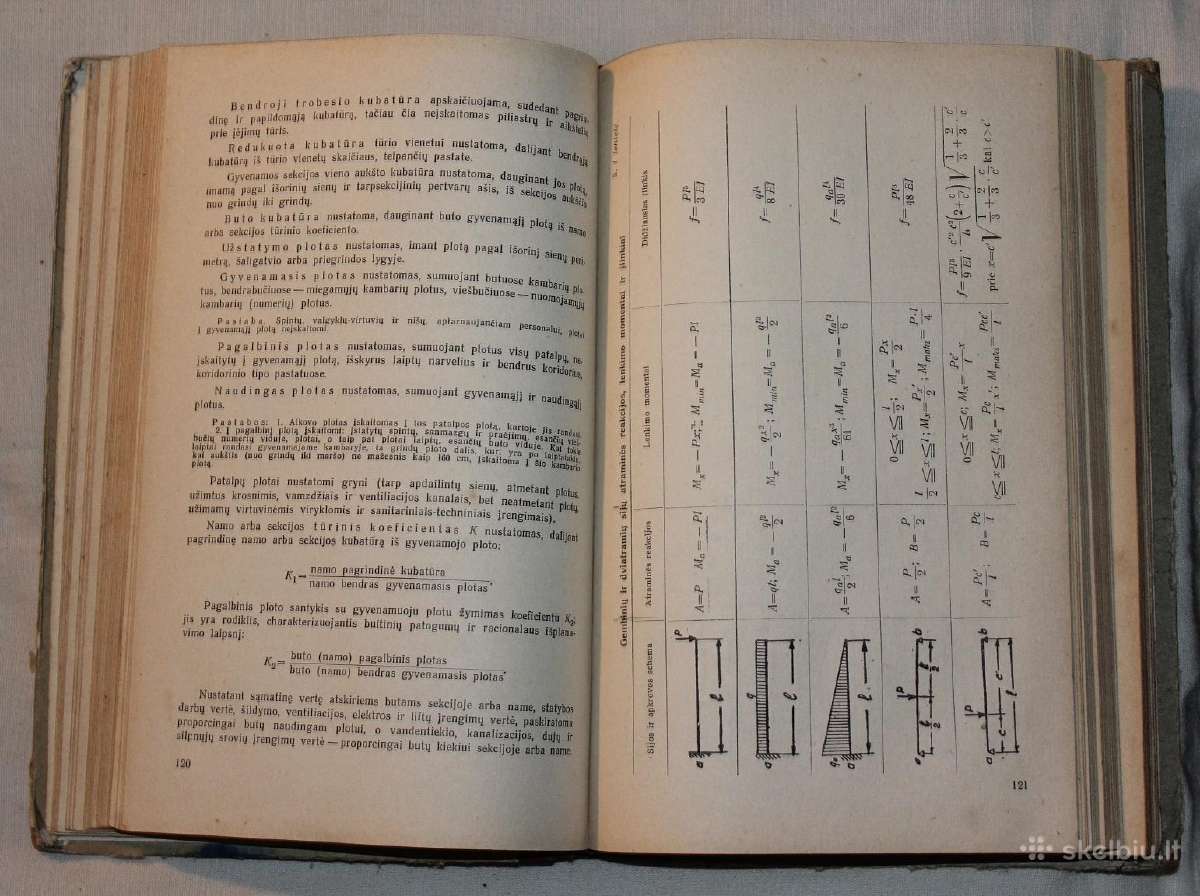 Bendroji trobesio kubatūra apskaičiuojama, sudedant pagrin-
dinę ir papildomąją kubatūrą, tačiau čia neįskaitomas piliastrų ir aikštelių
prie įėjimų tūris.
Redukuota kubatūra tūrio vienetui nustatoma, dalijant bendrąją
kubatūrą iš tūrio vienetų skaičiaus, telpančių pastate.
Gyvenamos sekcijos vieno aukšto kubatūra nustatoma, dauginant jos plotą,
imamą pagal išorinių sienų ir tarpsekcijinių pertvarų ašis, iš sekcijos aukščio
nuo grindų iki grindų.
Buto kubatūra nustatoma, dauginant buto gyvenamąjį plotą iš namo
arba sekcijos tūrinio koeficiento.
Užstatymo plotas nustatomas, imant plotą pagal išorinį sienų peri-
metrą, šaligatvio arba priegrindos lygyje.
Gyvenamasis plotas nustatomas, sumuojant butuose kambarių plo-
tus, bendrabučiuose — miegamųjų kambarių plotus, viešbučiuose — nuomojamųjų
kambarių (numerių) plotus.
Pastaba. Spintų, valgyklų-virtuvių ir nišų, aptarnaujančiam personalui, plotai
į gyvenamąjį plotą neįskaitomi.
Pagalbinis plotas nustatomas, sumuojant plotus visų patalpų, ne-
įskaitytų į gyvenamąjį plotą, išskyrus laiptų narvelius ir bendrus koridorius,
koridorinio tipo pastatuose.
Naudingas plotas nustatomas, sumuojant gyvenamąjį ir naudingąjį
plotus.
Pastabos: 1. Alkovo plotas įskaitomas į tos patalpos plotą, kurioje jis randasi.
2. Į pagalbinį plotą įskaitomi: įstatytų spintų, sanmazgų ir praėjimų, esančių vieš-
bučių numerių viduje, plotai, o taip pat plotai laiptų, esančių buto viduje. Kai tokie
laiptai randasi gyvenamajame kambaryje, ta grindų ploto dalis, kur yra po laiptatakiu,
kai aukštis (nuo grindų iki maršo) ne mažesnis kaip 160 cm, įskaitoma į šio kambario
plotą.
Patalpų plotai nustatomi gryni (tarp apdailintų sienų, atmetant plotus,
užimtus krosnimis, vamzdžiais ir ventiliacijos kanalais, bet neatmetant plotų,
užimamų virtuvinėmis viryklomis ir sanitariniais-techniniais įrengimais).
Namo arba sekcijos tūrinis koeficientas K nustatomas, dalijant
pagrindinę namo arba sekcijos kubatūrą iš gyvenamojo ploto:
K₁ = namo pagrindinė kubatūra
namo bendras gyvenamasis plotas.
Pagalbinis ploto santykis su gyvenamuoju plotu žymimas koeficientu K₂;
jis yra rodiklis, charakterizuojantis buitinių patogumų ir racionalaus išplana-
vimo laipsnį:
K₂ = buto (namo) pagalbinis plotas
buto (namo) bendras gyvenamasis plotas.
Nustatant sąmatinę vertę atskiriems butams sekcijoje arba name, statybos
darbų vertė, šildymo, ventiliacijos, elektros ir liftų įrengimų vertė, paskirstoma
proporcingai butų naudingam plotui, o vandentiekio, kanalizacijos, dujų ir
silpnųjų srovių įrengimų vertė — proporcingai butų kiekiui sekcijoje arba name.
120
Gembinių ir dviatramių sijų atraminės reakcijos, lenkimo momentai ir įlinkiai
Sijos ir apkrovos schema
Atraminės reakcijos
Lenkimo momentai
Didžiausias įlinkis
P a l
A=P Mₐ=−Pl
Mₓ=−Px; Mmin=Mₐ=−Pl
f=Pl³/3 EI
q l
A=ql; Mₐ=−ql²/2
Mₓ=−qx²/2; Mmin=Mₐ=−ql²/2
f=ql⁴/8 EI
q₀ a l
A=q₀l/2; Mₐ=−q₀l²/6
Mₓ=−q₀x³/6l; Mmin=Mₐ=−q₀l²/6
f=q₀l⁴/30 EI
a P b l/2 l
A=P/2; B=P/2
0≤x≤l/2; Mₓ=Px/2
l/2≤x≤l; Mₓ=Px′/2; Mmaks=P·l/4
f=Pl³/48 EI
a P b c c′ l
A=Pc′/l; B=Pc/l
0≤x≤c; Mₓ=Pc′/l x
c≤x≤l; Mₓ=Pc/l x′; Mmaks=Pcc′/l
prie x=c′√(1/3+2/3·c/c′) kai c>c′
121
skelbiu.lt